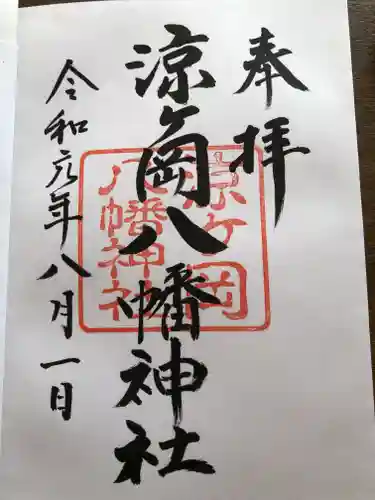 奉拝
涼ケ岡八幡神社
令和元年八月一日
涼ケ岡
八幡神社